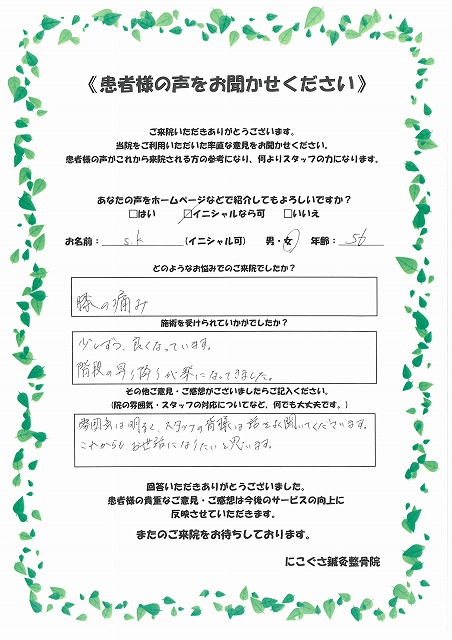 《患者様の声をお聞かせください》
ご来院いただきありがとうございます。
当院をご利用いただいた率直な意見をお聞かせください。
患者様の声がこれから来院される方の参考になり、何よりスタッフの力になります。
あなたの声をホームページなどで紹介してもよろしいですか?
□はい ☑イニシャルなら可 □いいえ
お名前: S.K (イニシャル可) 男・女 年齢: 56
どのようなお悩みでのご来院でしたか?
膝の痛み
施術を受けられていかがでしたか?
少しずつ、良くなっています。
階段の昇り降りが楽になってきました。
その他ご意見・ご感想がございましたらご記入ください。
(院の雰囲気・スタッフの対応についてなど、何でも大丈夫です。)
雰囲気は明るく、スタッフの皆様は話をよく聞いてくださいます。
これからも、お世話になりたいと思います。
回答いただきありがとうございました。
患者様の貴重なご意見・ご感想は今後のサービスの向上に
反映させていただきます。
またのご来院をお待ちしております。
にこぐさ鍼灸整骨院